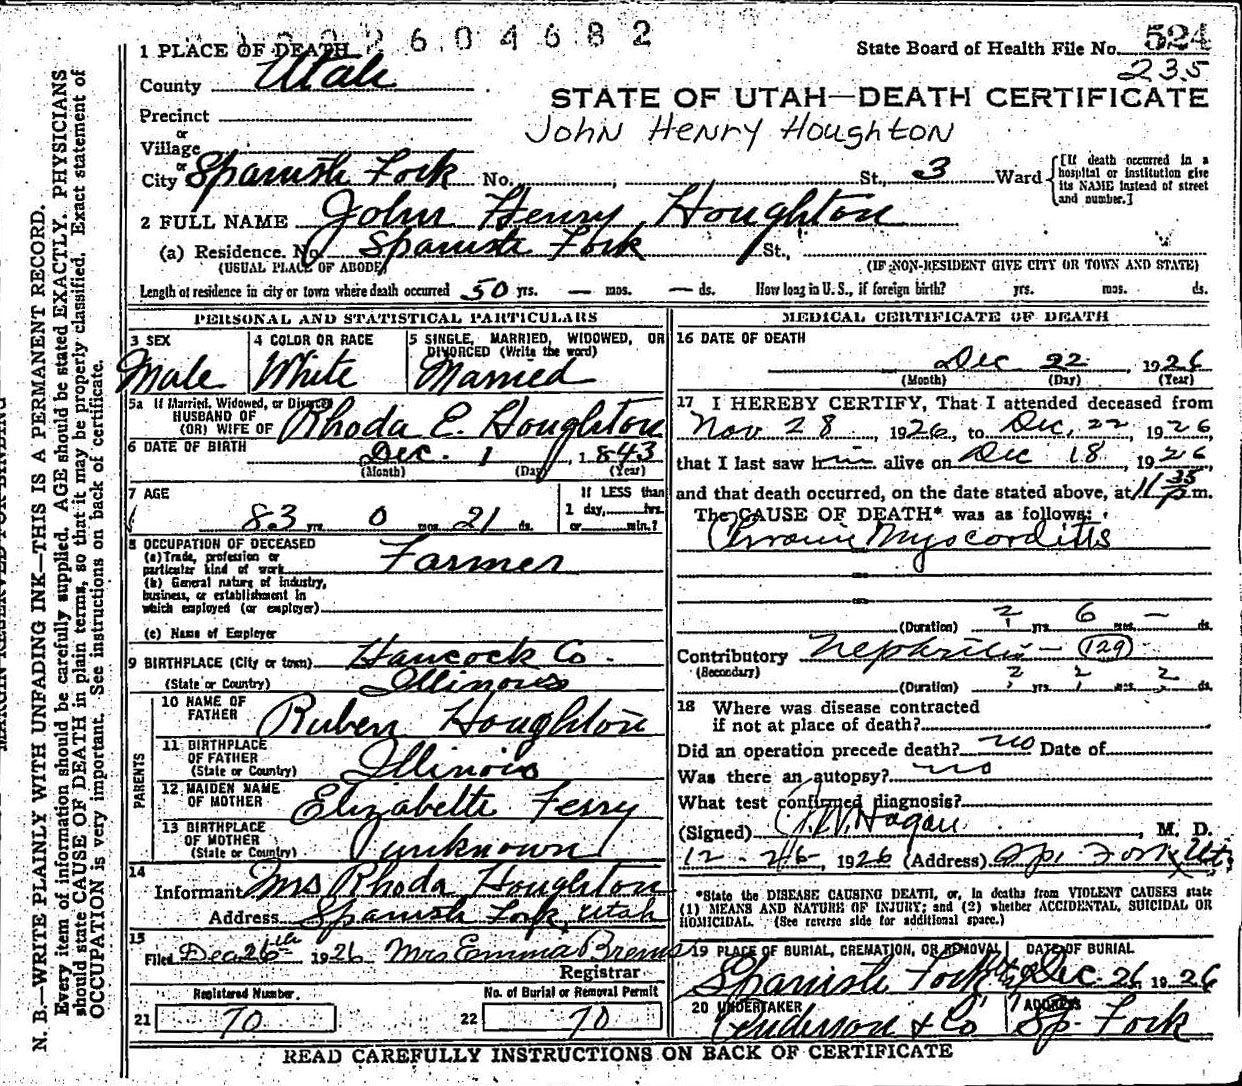 2604682
1 PLACE OF DEATH
State Board of Health File No. 524
235
County Utah
STATE OF UTAH—DEATH CERTIFICATE
John Henry Houghton
Precinct
or
Village
or
City Spanish Fork No. St., 3 Ward [If death occurred in a hospital or institution give its NAME instead of street and number.]
2 FULL NAME John Henry Houghton
(a) Residence. No. Spanish Fork St.,
(USUAL PLACE OF ABODE) (IF NON-RESIDENT GIVE CITY OR TOWN AND STATE)
Length of residence in city or town where death occurred 50 yrs. — mos. — ds. How long in U. S., if foreign birth? yrs. mos. ds.
PERSONAL AND STATISTICAL PARTICULARS
3 SEX
Male
4 COLOR OR RACE
White
5 SINGLE, MARRIED, WIDOWED, OR
DIVORCED (Write the word)
Married
5a If Married, Widowed, or Divorced
HUSBAND OF
(OR) WIFE OF Rhoda E. Houghton
6 DATE OF BIRTH Dec. 1 1843
(Month) (Day) (Year)
7 AGE
83 yrs. 0 mos. 21 ds.
If LESS than
1 day, hrs.
or min.?
8 OCCUPATION OF DECEASED
(a) Trade, profession or
particular kind of work Farmer
(b) General nature of industry,
business, or establishment in
which employed (or employer)
(c) Name of Employer
9 BIRTHPLACE (City or town) Hancock Co.
(State or Country) Illinois
PARENTS
10 NAME OF
FATHER Ruben Houghton
11 BIRTHPLACE
OF FATHER
(State or Country) Illinois
12 MAIDEN NAME
OF MOTHER Elizabette Ferry
13 BIRTHPLACE
OF MOTHER
(State or Country) unknown
14
Informant Mrs Rhoda Houghton
Address Spanish Fork, Utah
15
Filed Dec 26th 1926 Mrs Emma
Registrar
Registered Number.
21 70
No. of Burial or Removal Permit
22 70
MEDICAL CERTIFICATE OF DEATH
16 DATE OF DEATH
Dec 22, 1926
(Month) (Day) (Year)
17 I HEREBY CERTIFY, That I attended deceased from
Nov 28, 1926, to Dec, 22, 1926,
that I last saw him alive on Dec 18, 1926,
and that death occurred, on the date stated above, at 11 35 m.
The CAUSE OF DEATH* was as follows:
Chronic Myocorditis
(Duration) ? yrs. 6 mos. — ds.
Contributory Nephritis — (129)
(Secondary)
(Duration) ? yrs. ? mos. ? ds.
18 Where was disease contracted
if not at place of death?
Did an operation precede death? no Date of
Was there an autopsy? no
What test confirmed diagnosis?
(Signed) Hagan, M. D.
12-26, 1926 (Address) Sp. Fork Ut.
*State the DISEASE CAUSING DEATH, or, in deaths from VIOLENT CAUSES state
(1) MEANS AND NATURE OF INJURY; and (2) whether ACCIDENTAL, SUICIDAL OR
HOMICIDAL. (See reverse side for additional space.)
19 PLACE OF BURIAL, CREMATION, OR REMOVAL
Spanish Fork
DATE OF BURIAL
Dec. 26 1926
20 UNDERTAKER
& Co
ADDRESS
Sp. Fork
READ CAREFULLY INSTRUCTIONS ON BACK OF CERTIFICATE
MARGIN RESERVED FOR BINDING
N. B.—WRITE PLAINLY WITH UNFADING INK—THIS IS A PERMANENT RECORD.
Every item of information should be carefully supplied. AGE should be stated EXACTLY. PHYSICIANS
should state CAUSE OF DEATH in plain terms, so that it may be properly classified. Exact statement of
OCCUPATION is very important. See instructions on back of certificate.